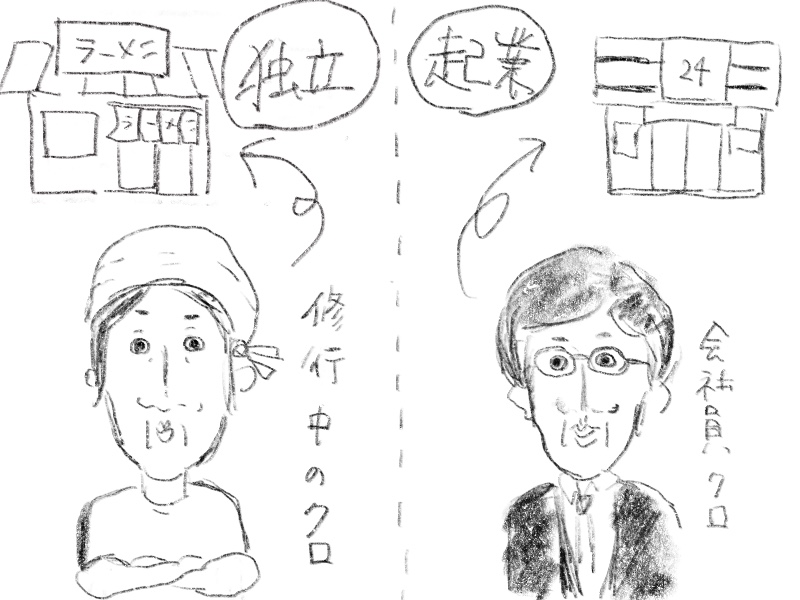 ラーメン
独立
ラーメン
修行中のクロ
起業
24
会社員クロ